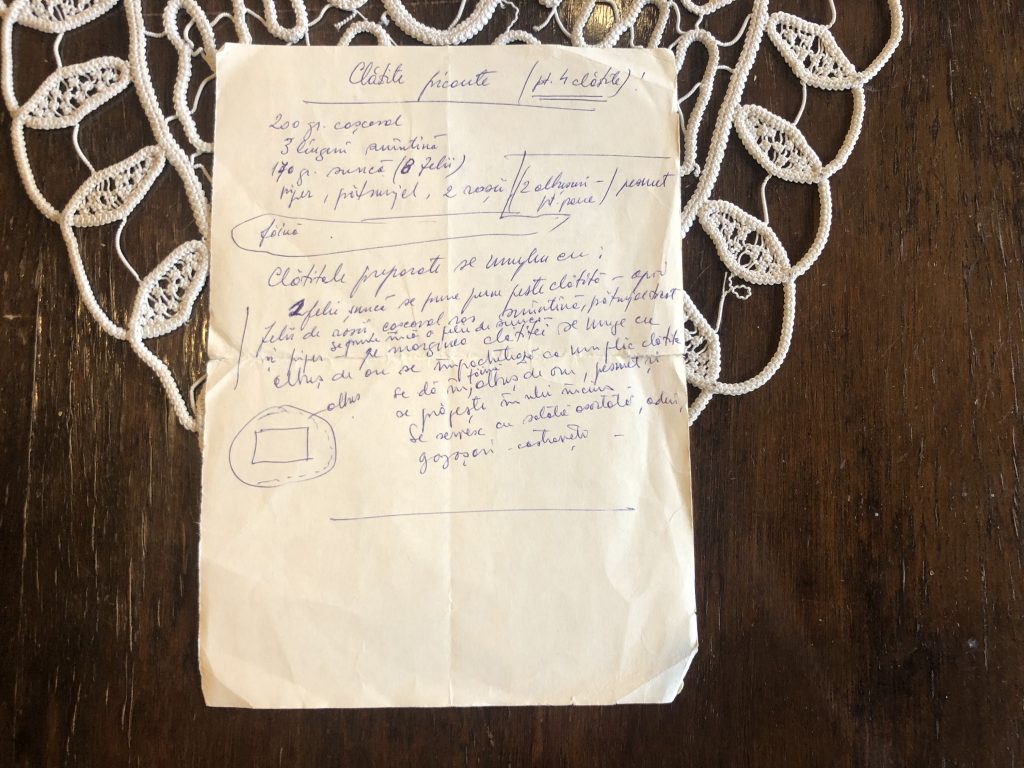 Clătite picante (pt. 4 clătite)!
200 gr. cașcaval
3 linguri smîntînă
170 gr. șuncă (8 felii)
piper, pătrunjel, 2 roșii (2 albușuri - pt. pane) pesmet
făină
Clătitele preparate se umplu cu:
2 felii șuncă se pune peste clătită - apoi
felii de roșii cașcaval ras smîntînă, pătrunjel
și piper se pune încă o felie de șuncă
se marginea clătitei se unge cu
albuș de ou se împachetează ca un plic clătita
se dă în făină, albuș de ou, pesmet și
se prăjește în ulei încins -
Se servesc cu salată asortată, ardei,
gogoșari - castraveți -
albuș